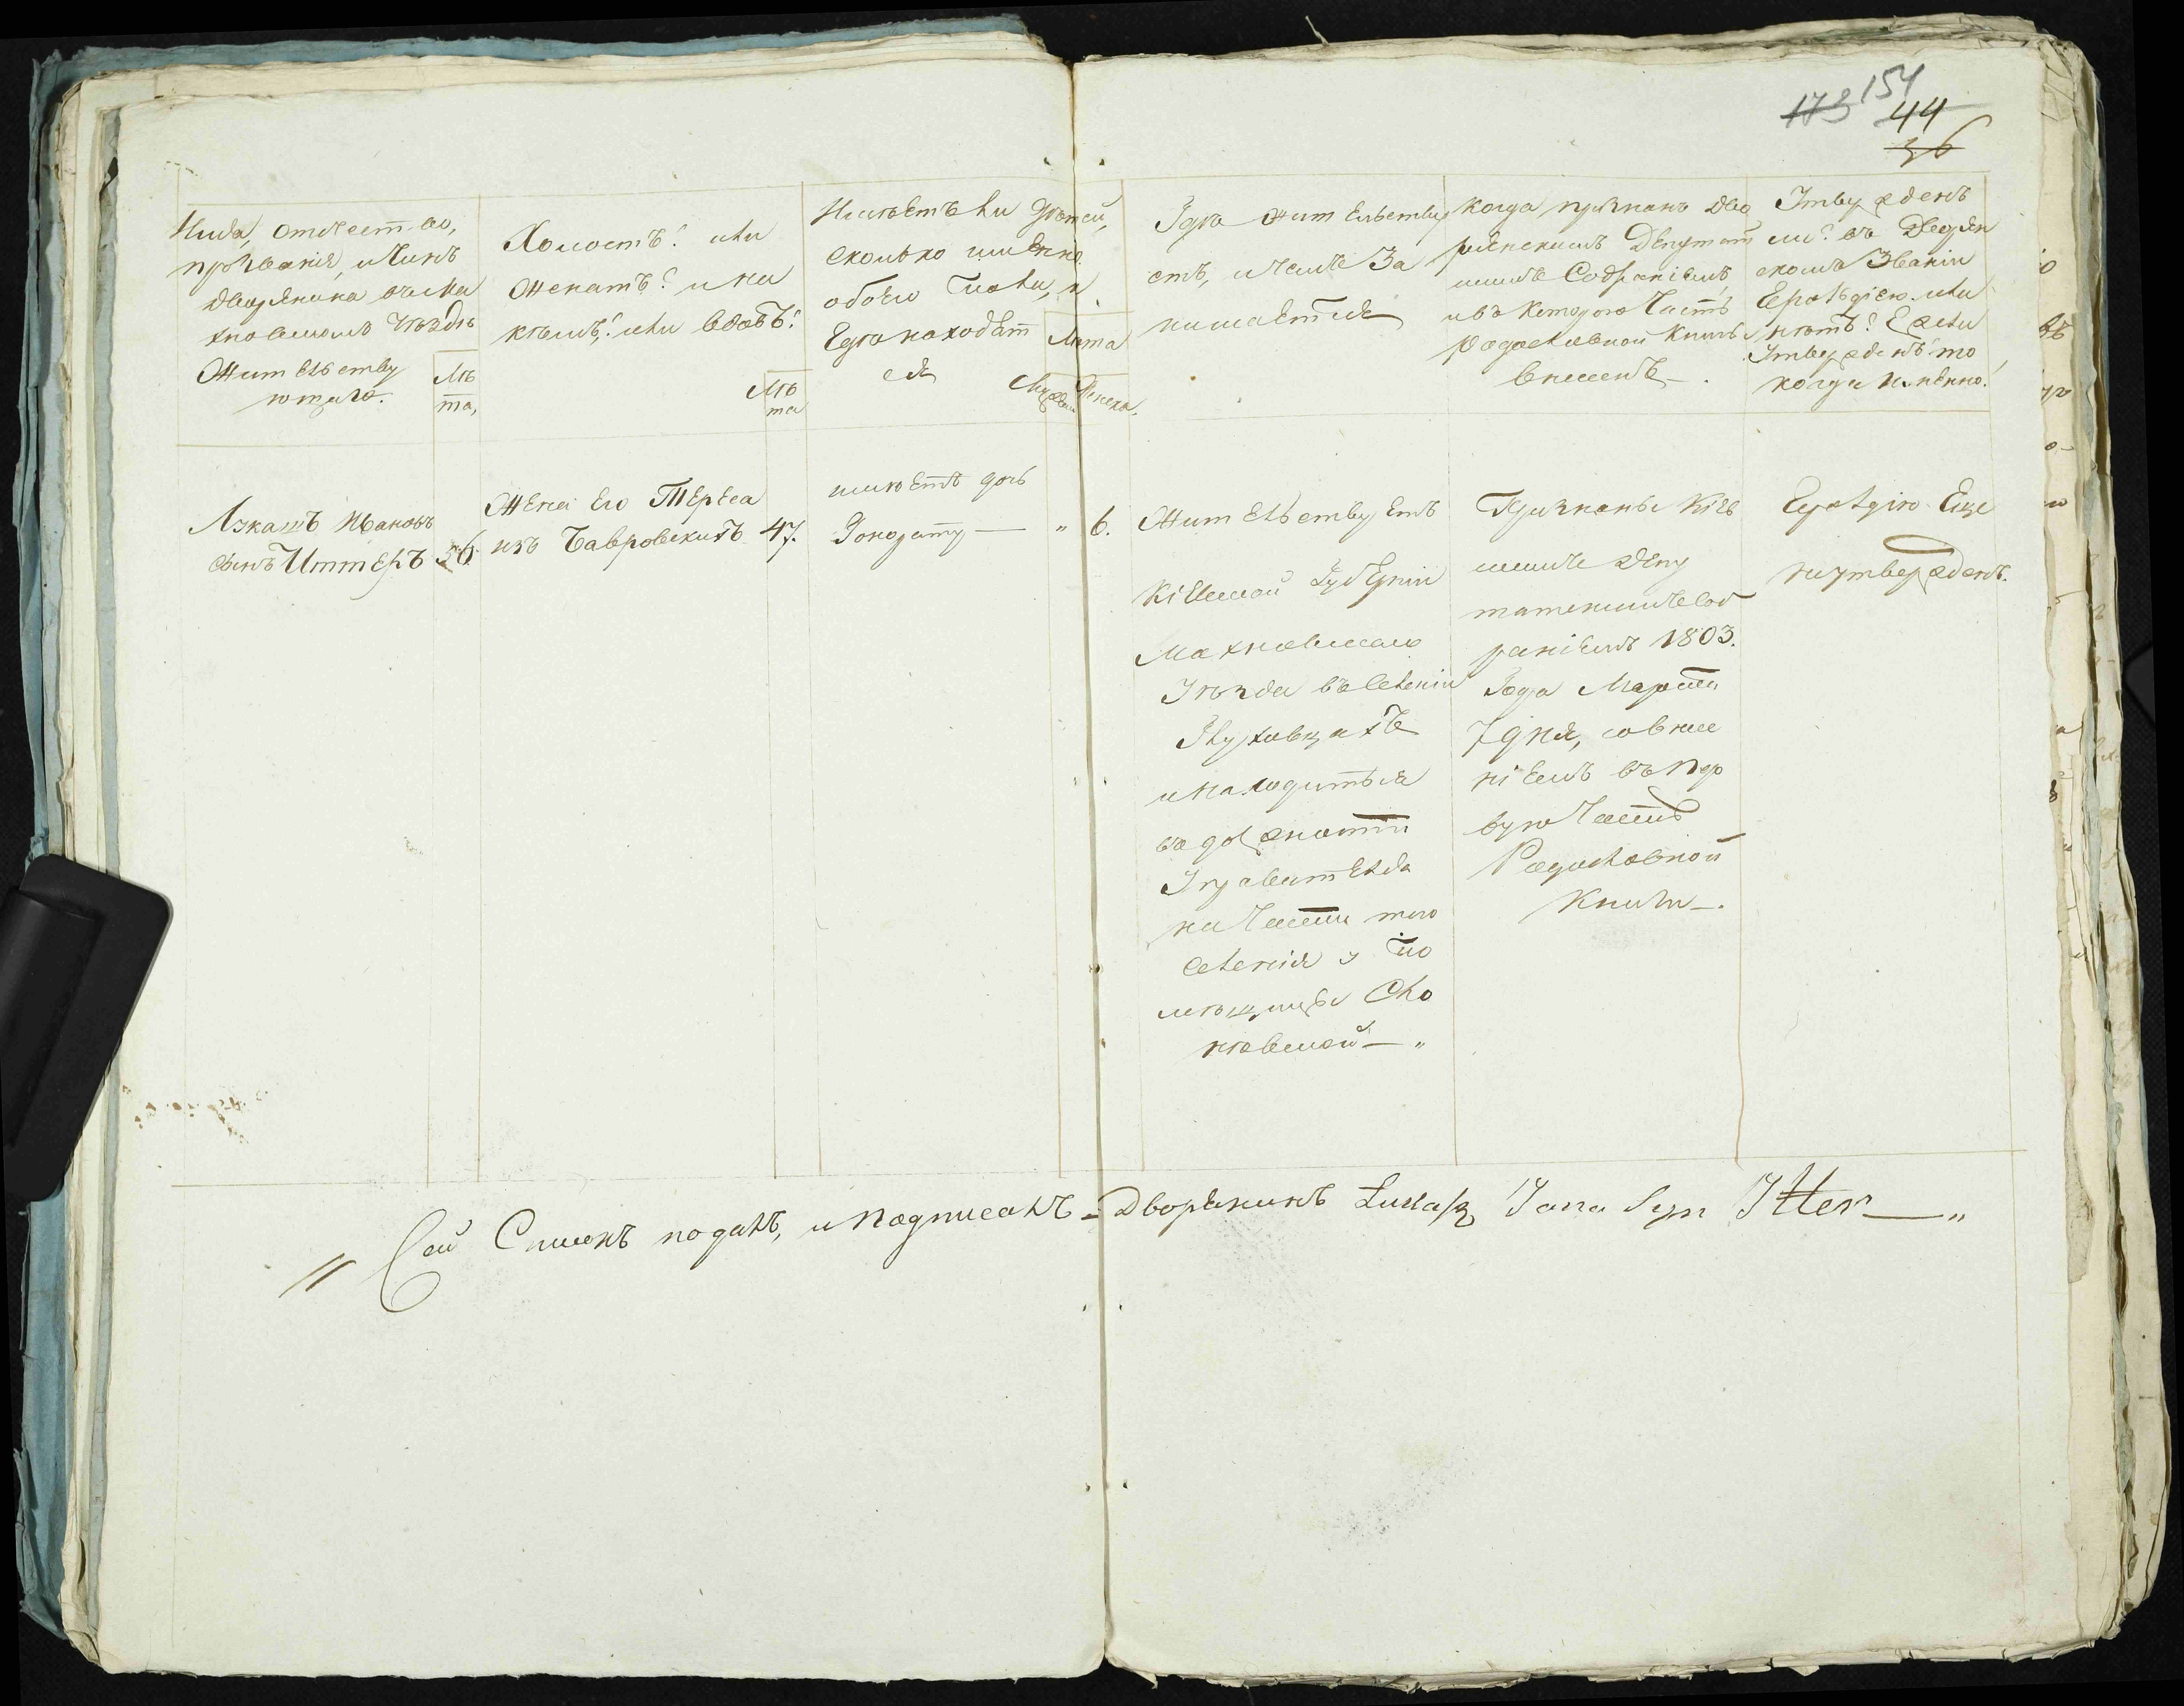 173 154
44
36
Имя, отчество,
прозвания, и Чинъ
дворянина в Ма
хновскомъ Уездъ
Жительству
ющаго.
Лѣ
та,
Холостъ? или
Женатъ? и на
комъ? или вдовъ?
Лѣ
та
Имѣетъ ли Дѣтей,
сколько именно
обоего Пола, и
Гдѣ находят
ся
Лѣта
Мужеска Женска.
Гдѣ жительству
етъ, и чемъ За
нимается
Когда признанъ Дво
рянскимъ Депутат
скимъ Собраниемъ,
и въ Которую Часть
родословной Книги
внесенъ.
Утвержденъ
ли? въ Дворян
скомъ Званіи
Герольдіею. или
нѣтъ? Ежели
Утвержденъ то
когда Именно?
Лукашъ Ивановъ
сынъ Иттеръ 56.
Жена Его Тереса
изъ Бавровскихъ 47.
имѣетъ дочь
Гонорату — " 6.
Жительствуетъ
Кіевской Губерніи
Махновского
Уѣзда въ Селеніи
Глуховцахъ
и находится
в должности
Управителя
на Части того
Селенія у По
мѣщицы Сло
невской — "
Признанъ Кіев
скимъ Депу
татскимъ Соб
раніемъ 1803.
Года Марта
7 дня, со внесе
ніемъ въ Пер
вую Часть
Родословной
Книги —.
Герольдіею Еще
не утвержденъ.
" Сей Списокъ подалъ, и Подписалъ = Дворянинъ Łukasz Jana Syn Itter — "